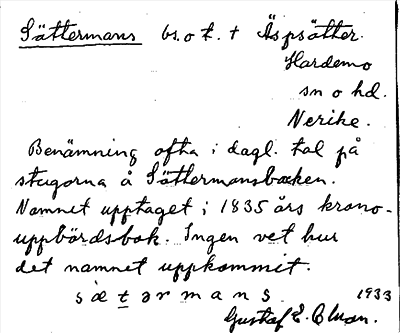 Sättermans bs. o t. + Äspsätter.
Hardemo
sn o hd.
Nerike.
Benämning ofta i dagl. tal på
stugorna å Sättermansbacken.
Namnet upptaget i 1835 års krono-
uppbördsbok. Ingen vet hur
det namnet uppkommit.
sætərmans. 1933
Gustaf E.